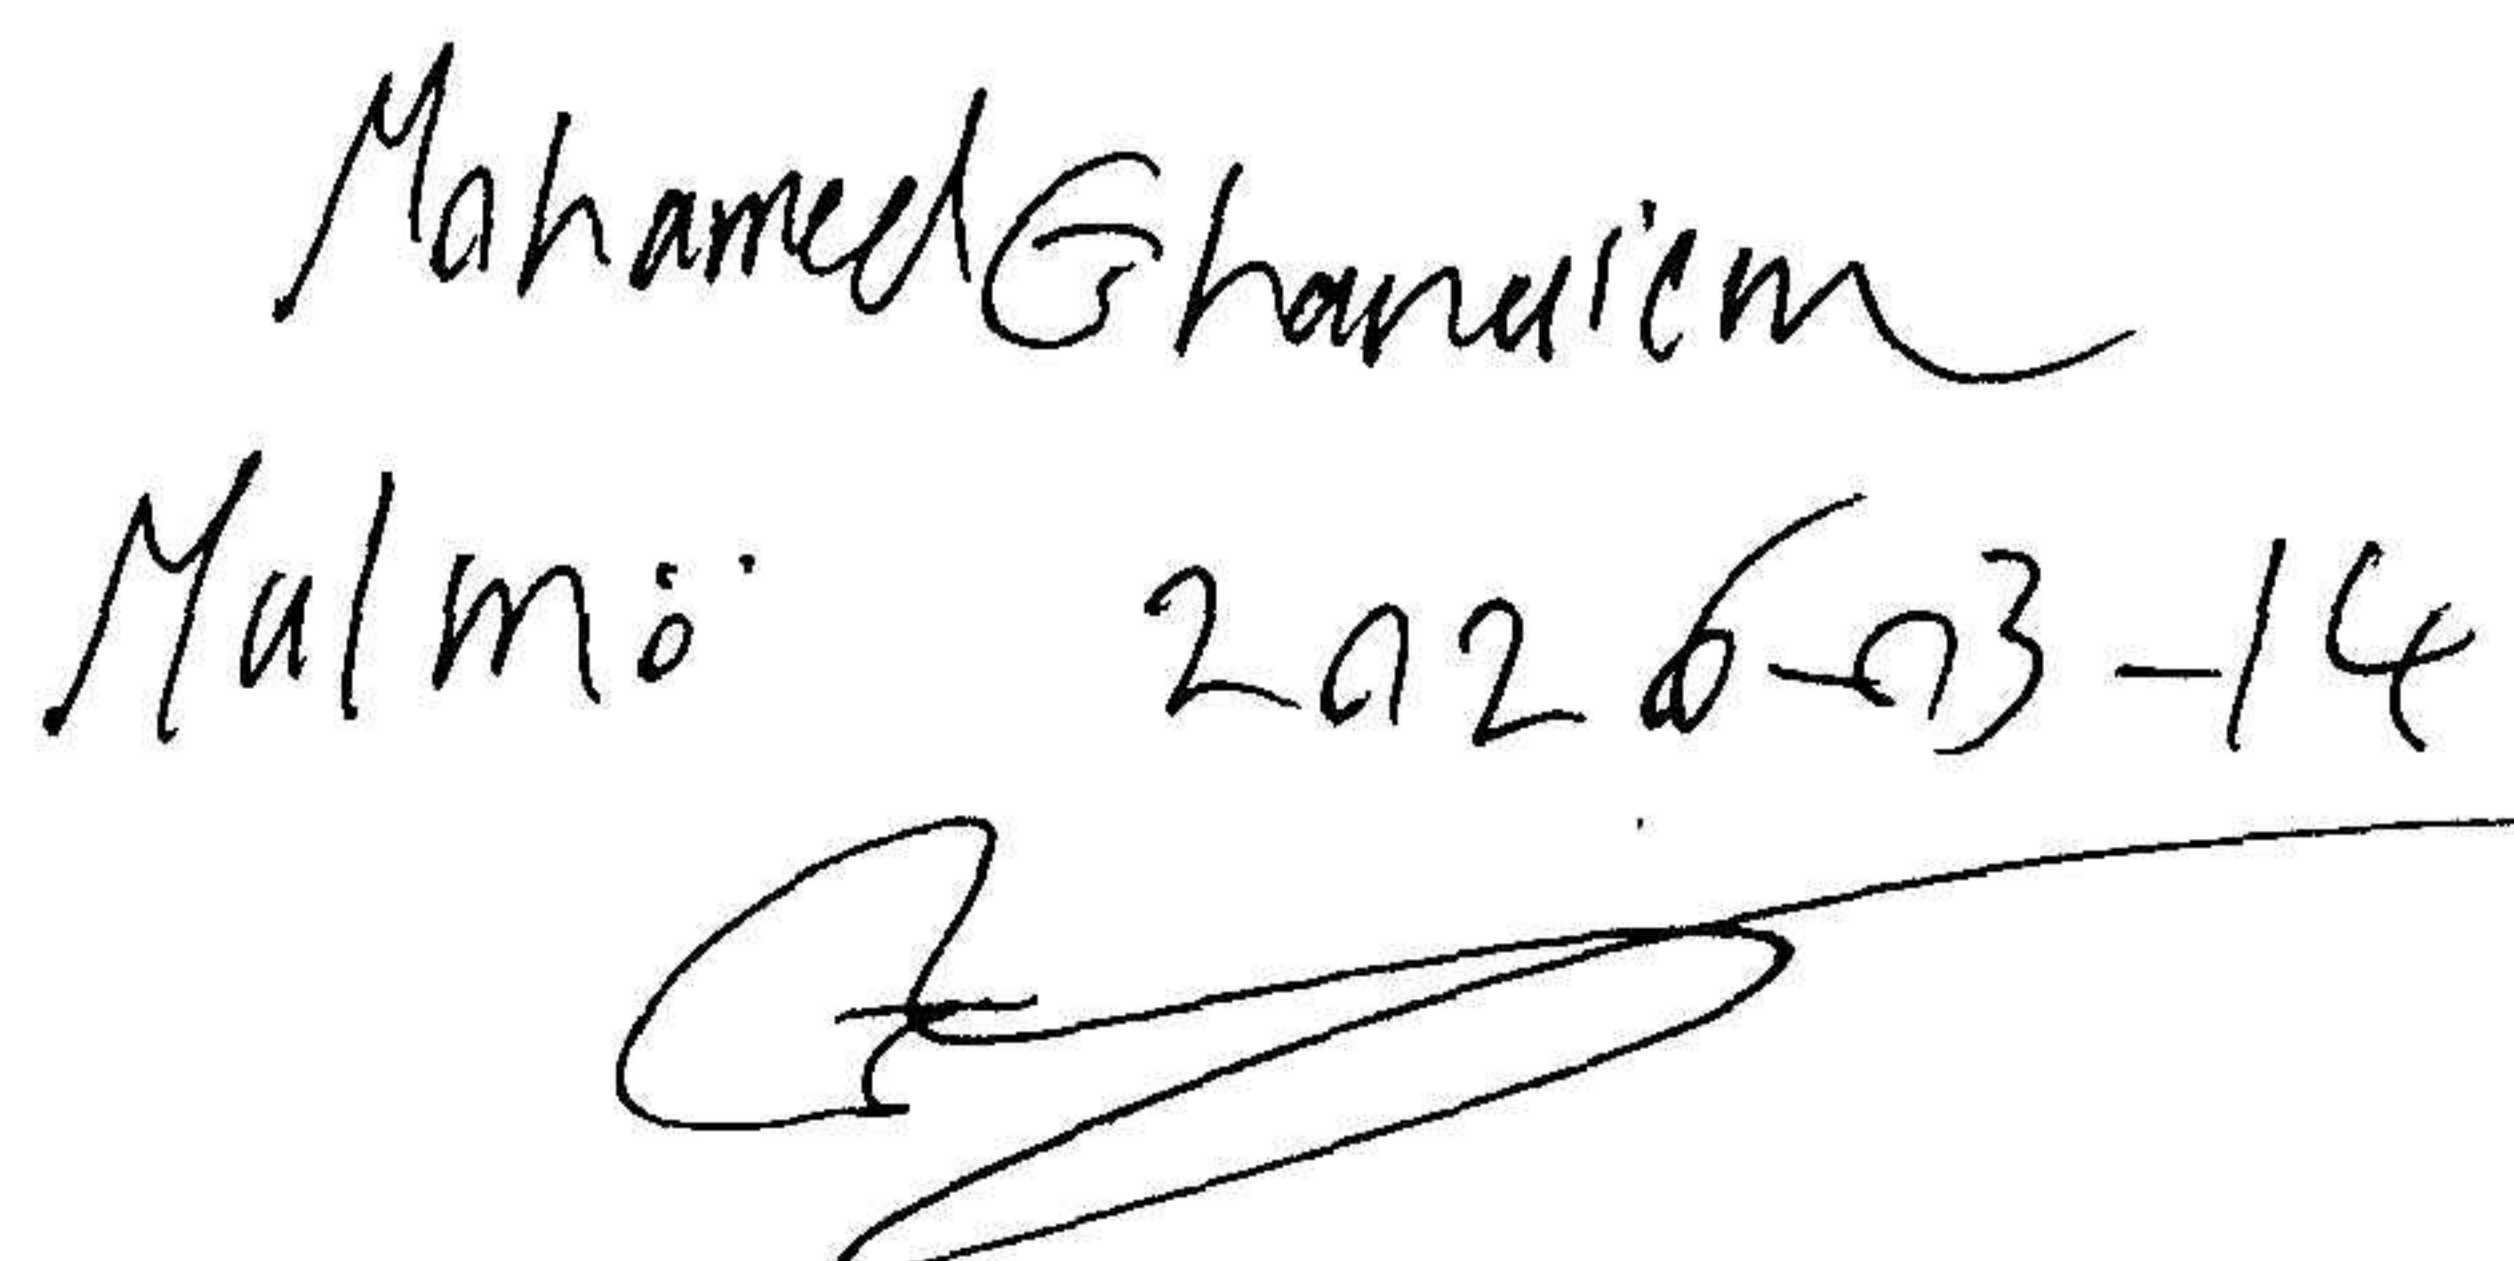 Mohamed Ghanaiem
Malmö 2026-03-14